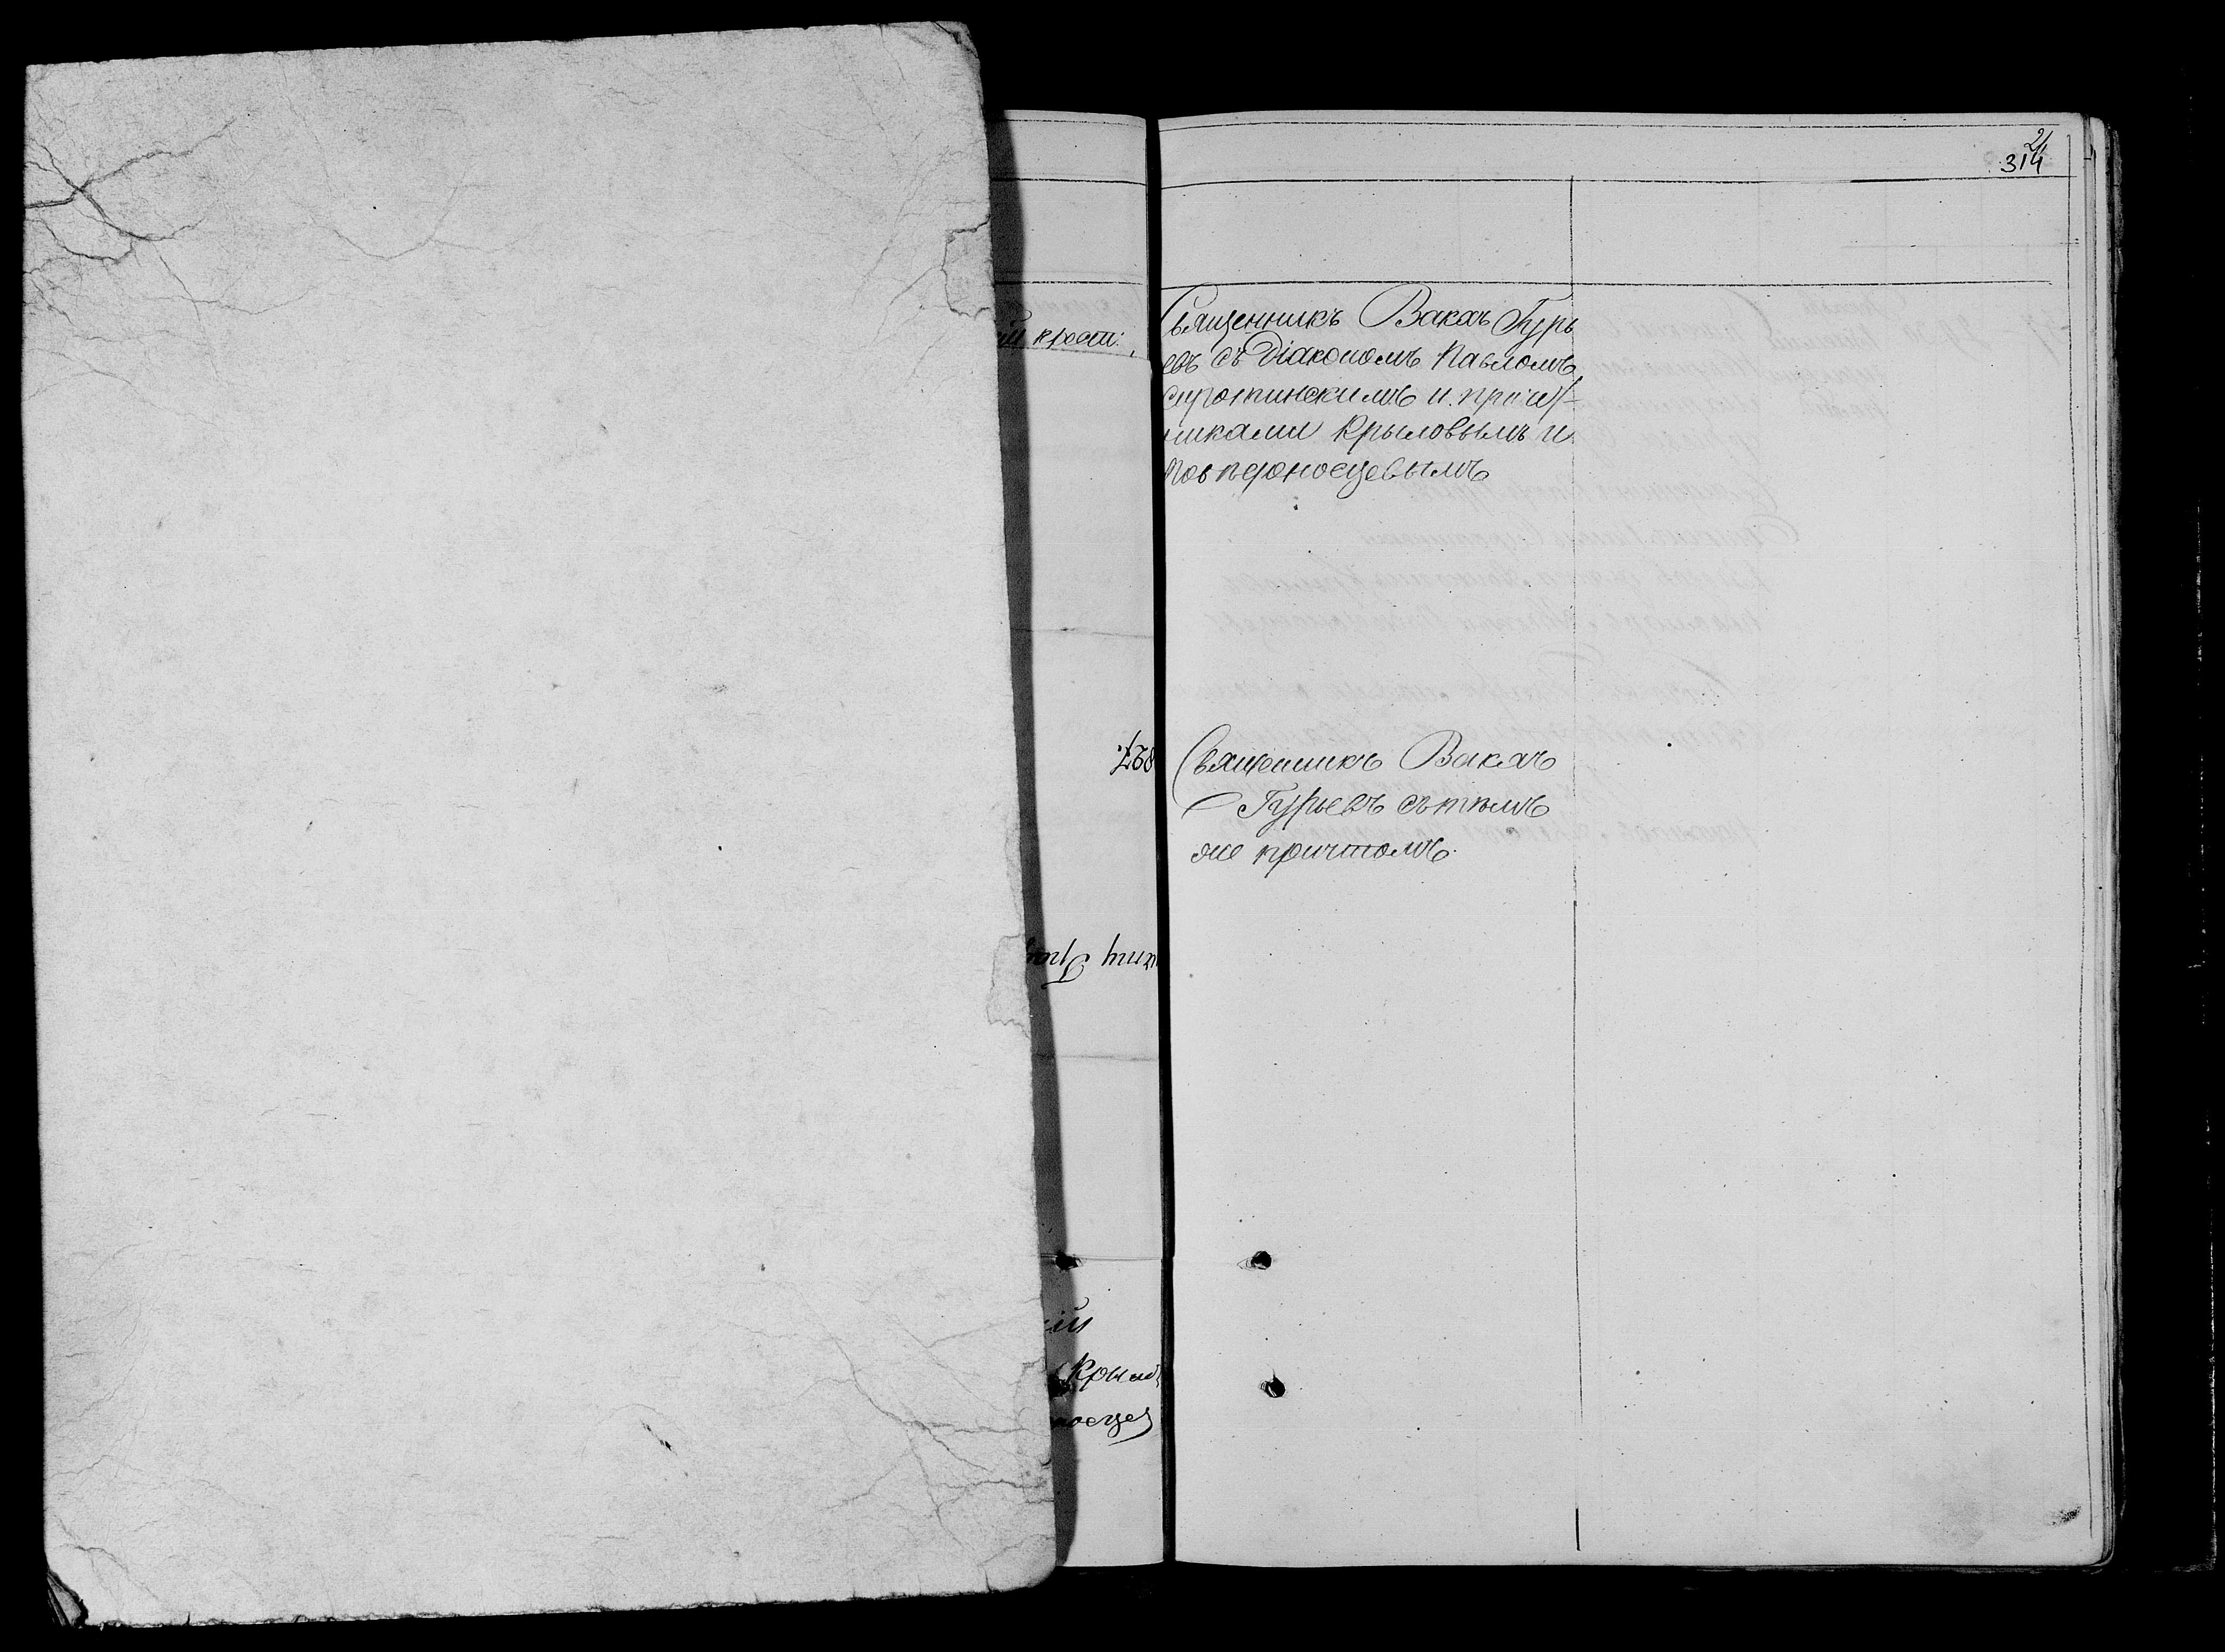 21
314
крест:
Священникъ Вакхъ Гурь
евъ съ Діакономъ Павломъ
Сиротинскимъ и причет
никами Крыловымъ и
Побѣдоносцевымъ
827.
Священникъ Вакхъ
Гурьевъ съ тѣмъ
же причтомъ.
ій
Крыло
носцев